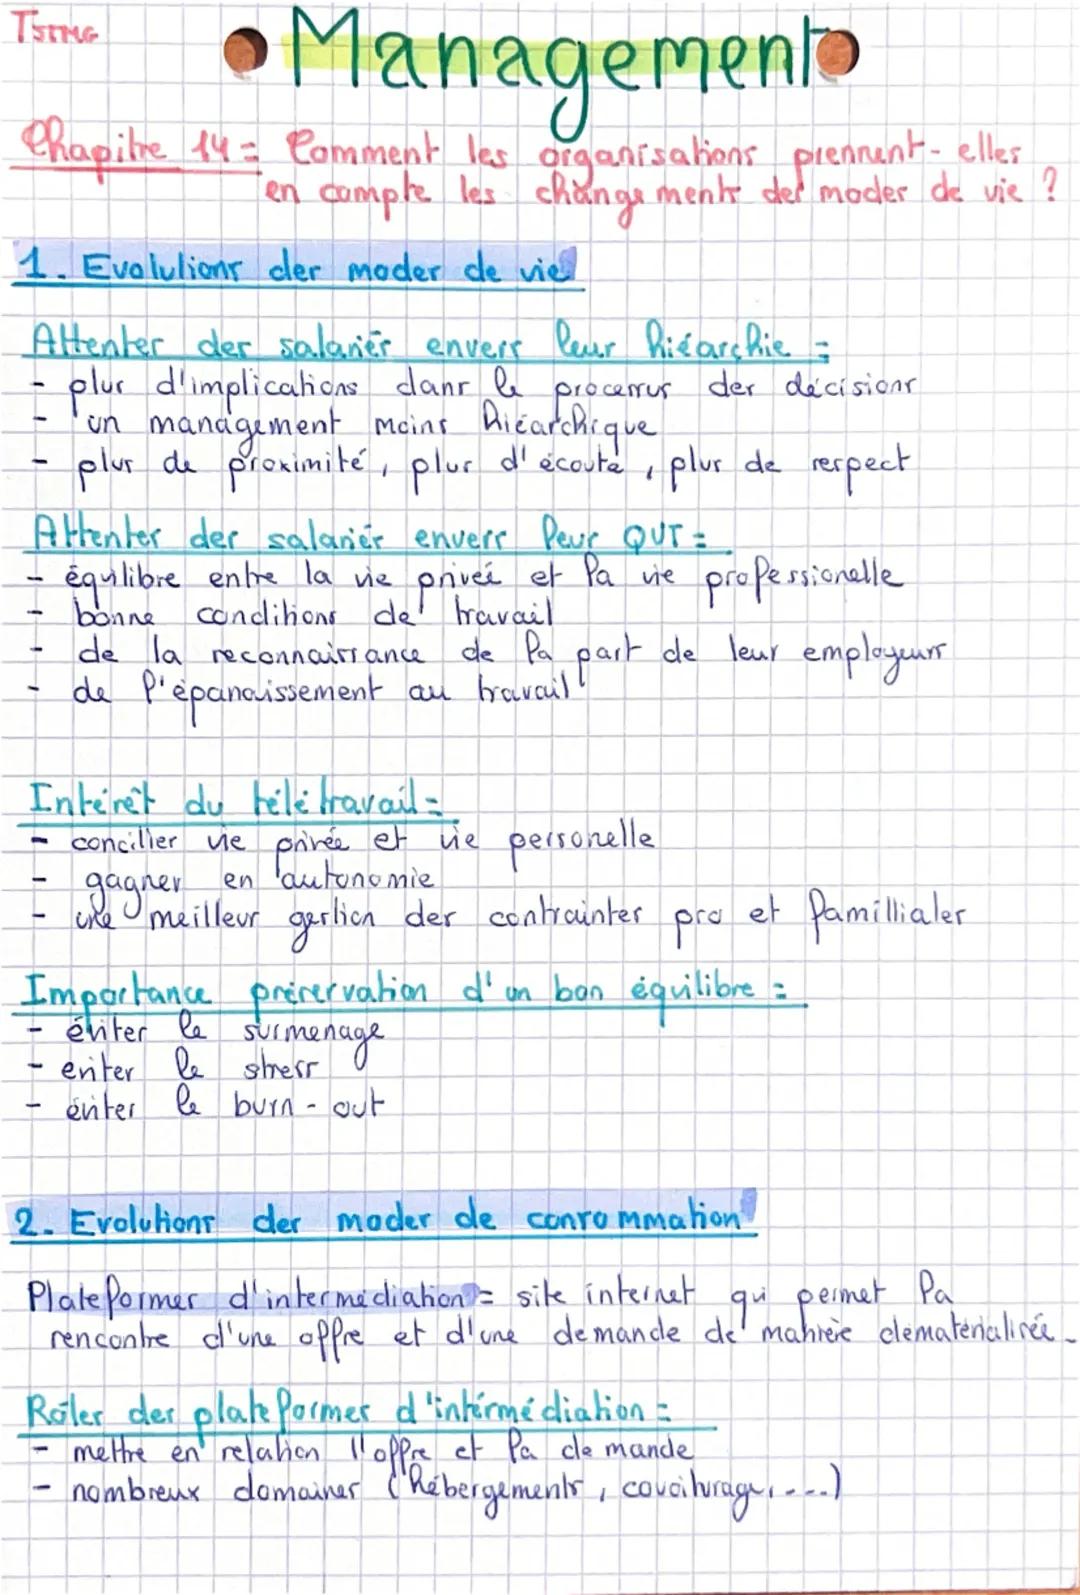 TSTMG
Management
Chapitre 14 = Comment les organisations prennent-elles
en compte les changements des modes de vie ?
1. Evolutions des modes de vie
Attentes des salariés envers leur hiéarchie =
- plus d'implications dans le processus des décisions
- un management moins hiéarchique
- plus de proximité, plus d'écoute, plus de respect
Attentes des salariés envers leur QVT =
- équilibre entre la vie privée et la vie professionelle
- bonne conditions de travail
- de la reconnaissance de la part de leur employeurs
- de l'épanouissement au travail
Intérêt du télétravail =
- concilier vie privée et vie personelle
- gagner en autonomie
- une meilleur gestion des contraintes pro et familliales
Importance préservation d'un bon équilibre =
- éviter le surmenage
- eviter le stress
- éviter le burn-out
2. Evolutions des modes de consommation
Plateformes d'intermédiation = site internet qui permet la
rencontre d'une offre et d'une demande de manière dématérialisée.
Rôles des plateformes d'intérmédiation =
- mettre en relation l'offre et la demande
- nombreux domaines (hébergements, covoiturage, ....)